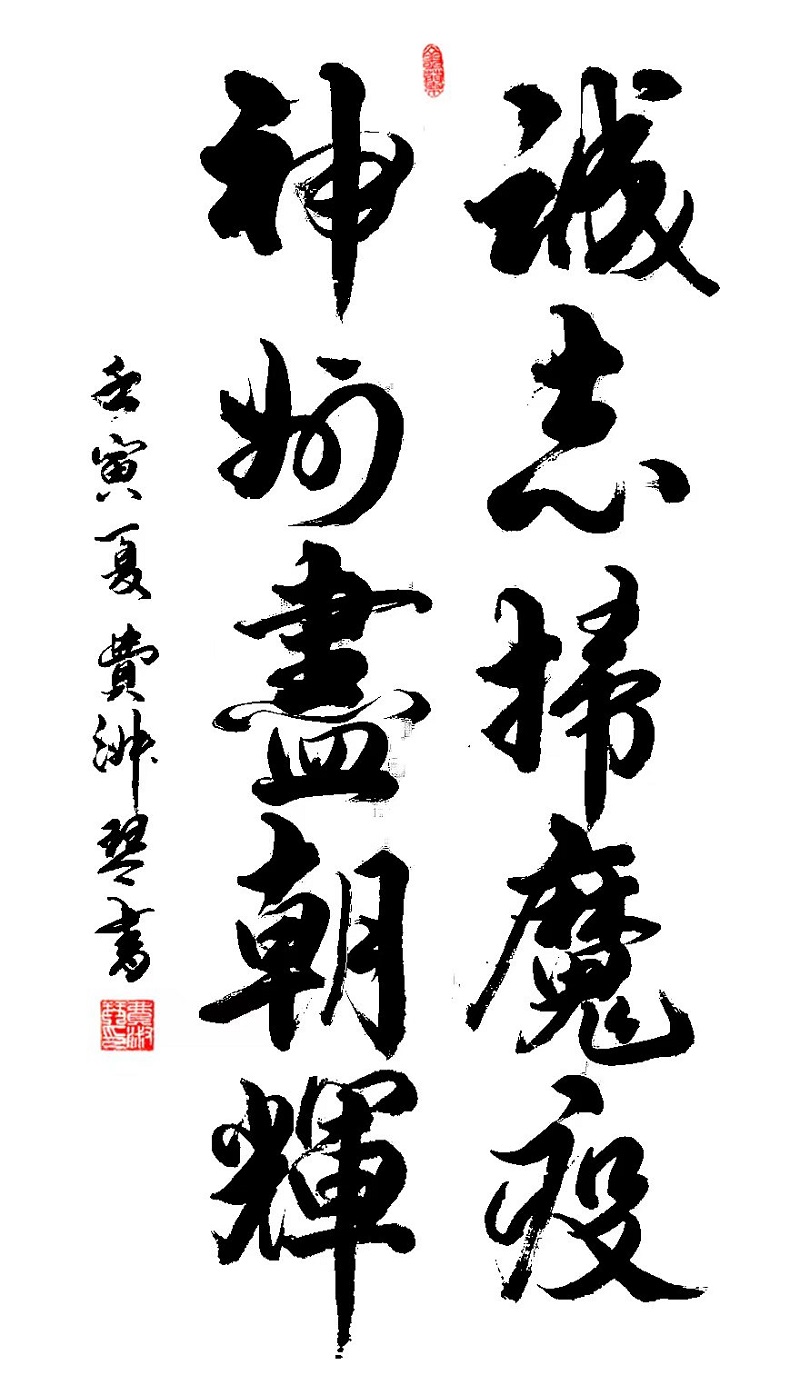 誠志掃魔疫
神州盡朝輝
壬寅夏費淋琴書